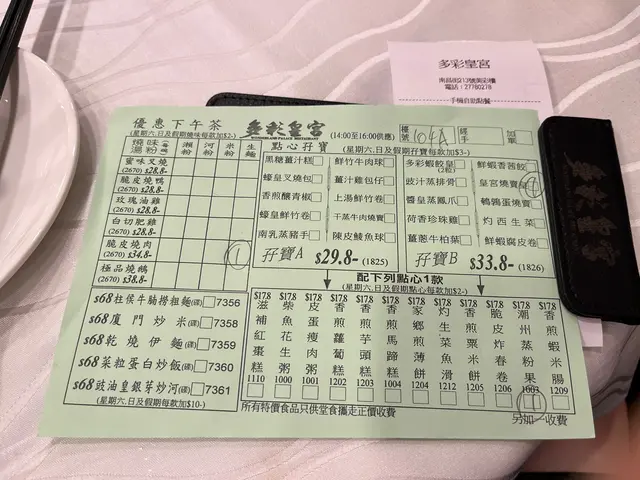 多彩皇宮
南昌街213號美彩樓
電話：27780278
手機自助點餐
優惠下午茶
(星期六,日及假期燒味每款加$2-)
多彩皇宮
(14:00至16:00供應)
檯號
104A
經手
加單
燒味湯粉
瀨粉
河粉
米粉
生麵
蜜味叉燒
(2670) $28.8-
脆皮燒鴨
(2670) $28.8-
玫瑰油雞
(2670) $28.8-
白切肥雞
(2670) $28.8-
脆皮燒肉
(2670) $34.8-
極品燒鵝
(2670) $38.8-
點心孖寶
(星期六,日及假期孖寶每款加$3-)
黑糖薑汁糕
鮮竹牛肉球
蠔皇叉燒包
薑汁雞包仔
香煎釀青椒
上湯鮮竹卷
蠔皇鮮竹卷
干蒸牛肉燒賣
南乳蒸豬手
陳皮鯪魚球
孖寶A
$29.8-
(1825)
多彩蝦餃皇
(2粒)
鮮蝦香茜餃
豉汁蒸排骨
皇宮燒賣
醬皇蒸鳳爪
鵪鶉蛋燒賣
荷香珍珠雞
灼西生菜
薑蔥牛柏葉
鮮蝦腐皮卷
孖寶B
$33.8-
(1826)
配下列點心1款
(星期六,日及假期點心每款加$2-)
$17.8 滋補紅棗糕 1110
$17.8 柴魚花生粥 1000
$17.8 皮蛋瘦肉粥 1001
$17.8 香煎蘿蔔糕 1202
$17.8 香煎芋頭糕 1203
$17.8 香煎馬蹄糕 1004
$17.8 家鄉薄餅 1204
$17.8 生煎魚肉餅 1212
$17.8 潮州粉果 1003
$17.8 香煎米腸 1209
$68柱侯牛腩撈粗麵(碟) 7356
$68廈門炒米(碟) 7358
$68乾燒伊麵(碟) 7359
$68菜粒蛋白炒飯(碟) 7360
$68豉油皇銀芽炒河(碟) 7361
(星期六,日及假期每款加$10-)
所有特價食品只供堂食攜走正價收費
另加一收費